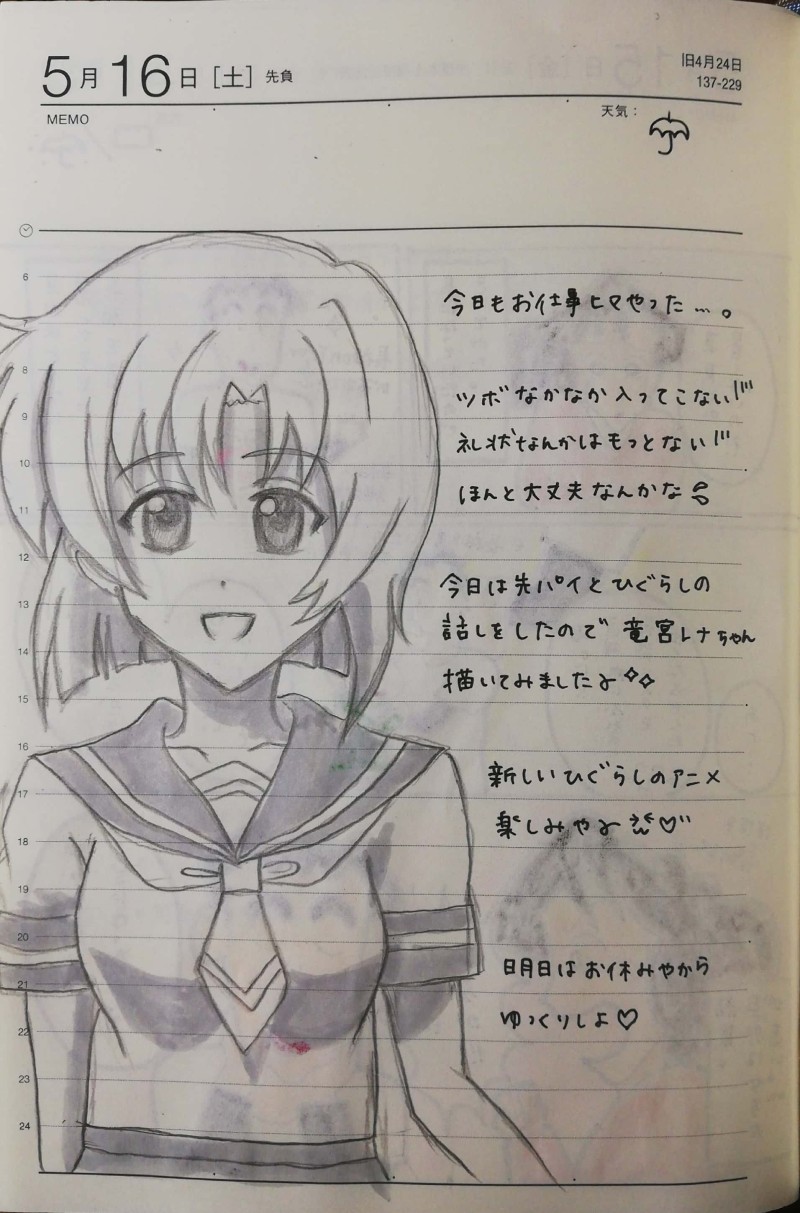 5月16日［土］先負
旧4月24日
137-229
MEMO
天気：
6
7
8
9
10
11
12
13
14
15
16
17
18
19
20
21
22
23
24
今日もお仕事ヒマやった…。
ツボなかなか入ってこない!!!
礼状なんかはもっとない!!!
ほんと大丈夫なんかな
今日は先パイとひぐらしの
話しをしたので 竜宮レナちゃん
描いてみました
新しいひぐらしのアニメ
楽しみや ♡
明日はお休みやから
ゆっくりしよ♡